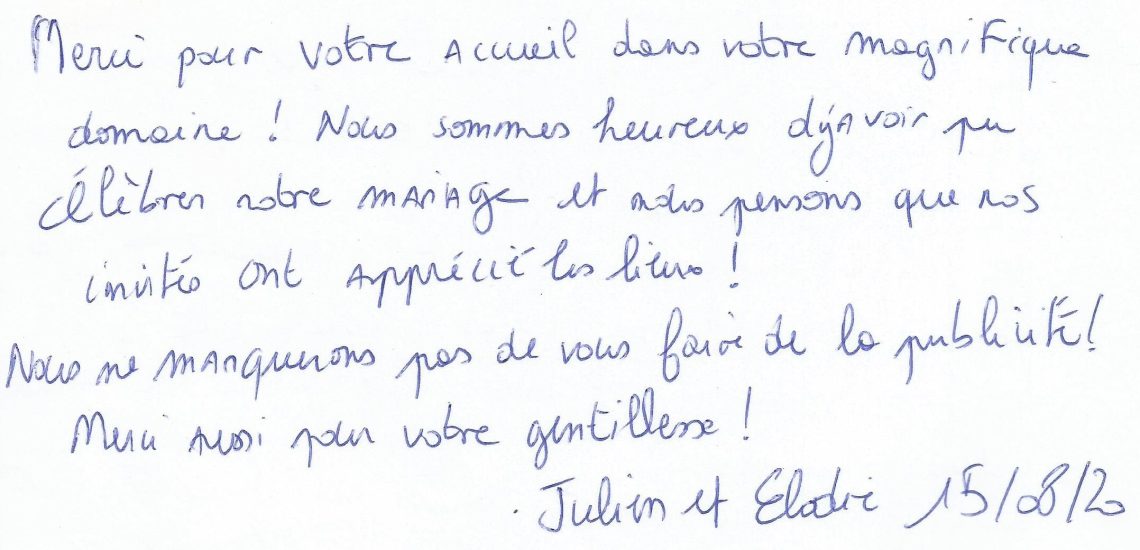 Merci pour votre accueil dans votre magnifique
domaine ! Nous sommes heureux d'y avoir pu
célèbrer notre mariage et nous pensons que nos
invités ont apprécié les lieux !
Nous ne manquerons pas de vous faire de la publicité !
Merci aussi pour votre gentillesse !
Julien et Elodie 15/08/20